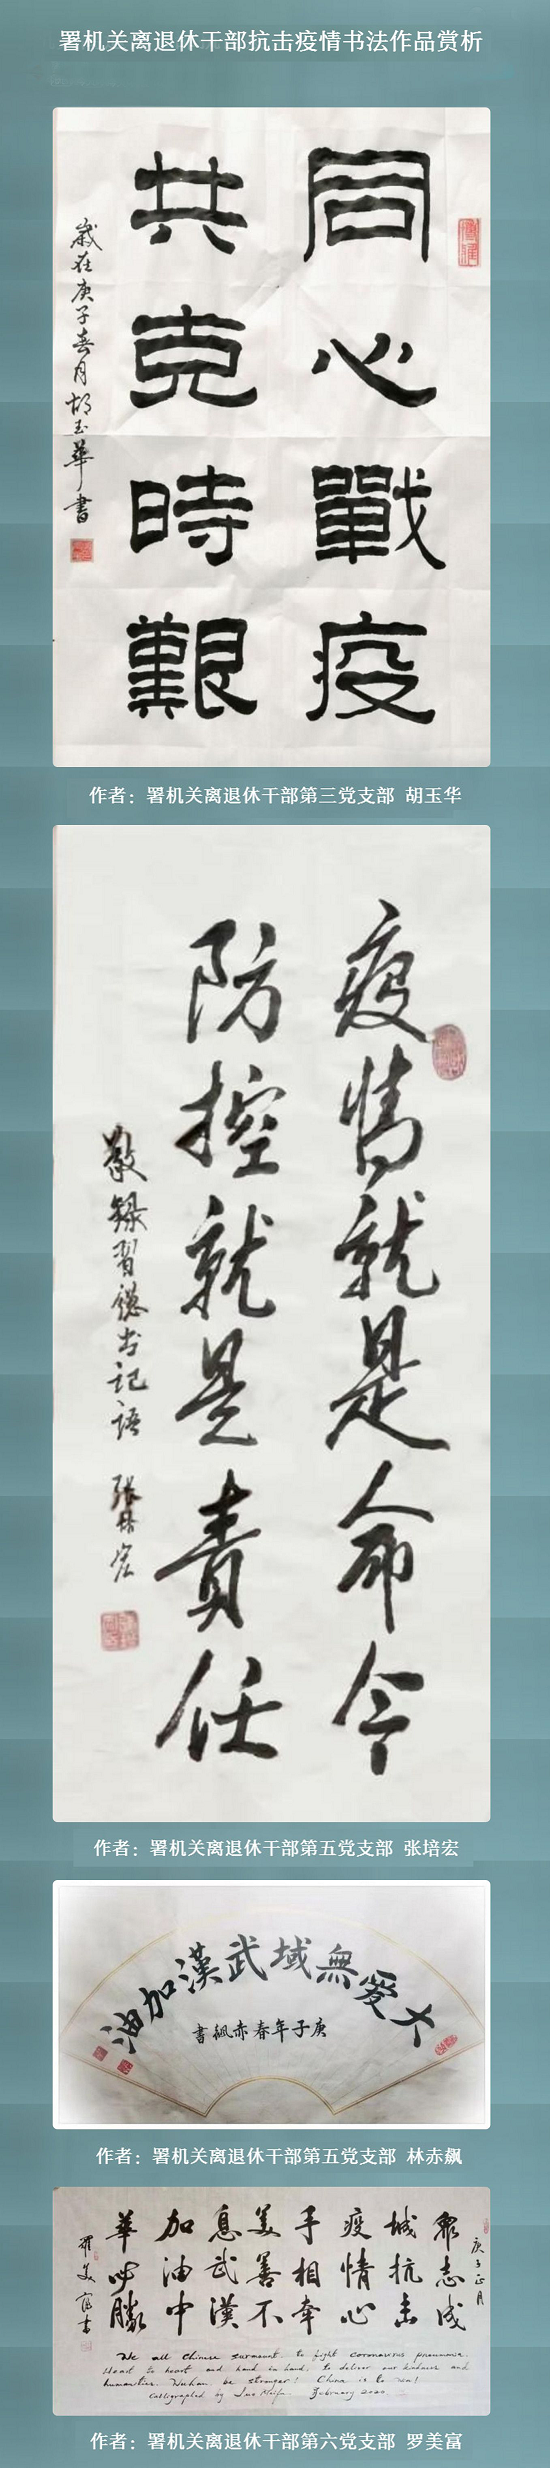 署机关离退休干部抗击疫情书法作品赏析
同心戰疫
共克時艱
歲在庚子春月胡玉華書
作者：署机关离退休干部第三党支部 胡玉华
疫情就是命令
防控就是責任
敬録習總书記語 張培宏
作者：署机关离退休干部第五党支部 张培宏
大愛無域武漢加油
庚子年春赤飆書
作者：署机关离退休干部第五党支部 林赤飙
庚子正月
衆志成
城抗击
疫情心
手相牵
美善不
息武漢
加油中
華必勝
羅美富书
We all Chinese surmount, to fight coronavirus pneumonia.
Heart to heart and hand in hand, to deliver our kindness and
humanities. Wuhan, be stronger! China is to win!
Calligraphed by Luo Meifu. February 2020.
作者：署机关离退休干部第六党支部 罗美富